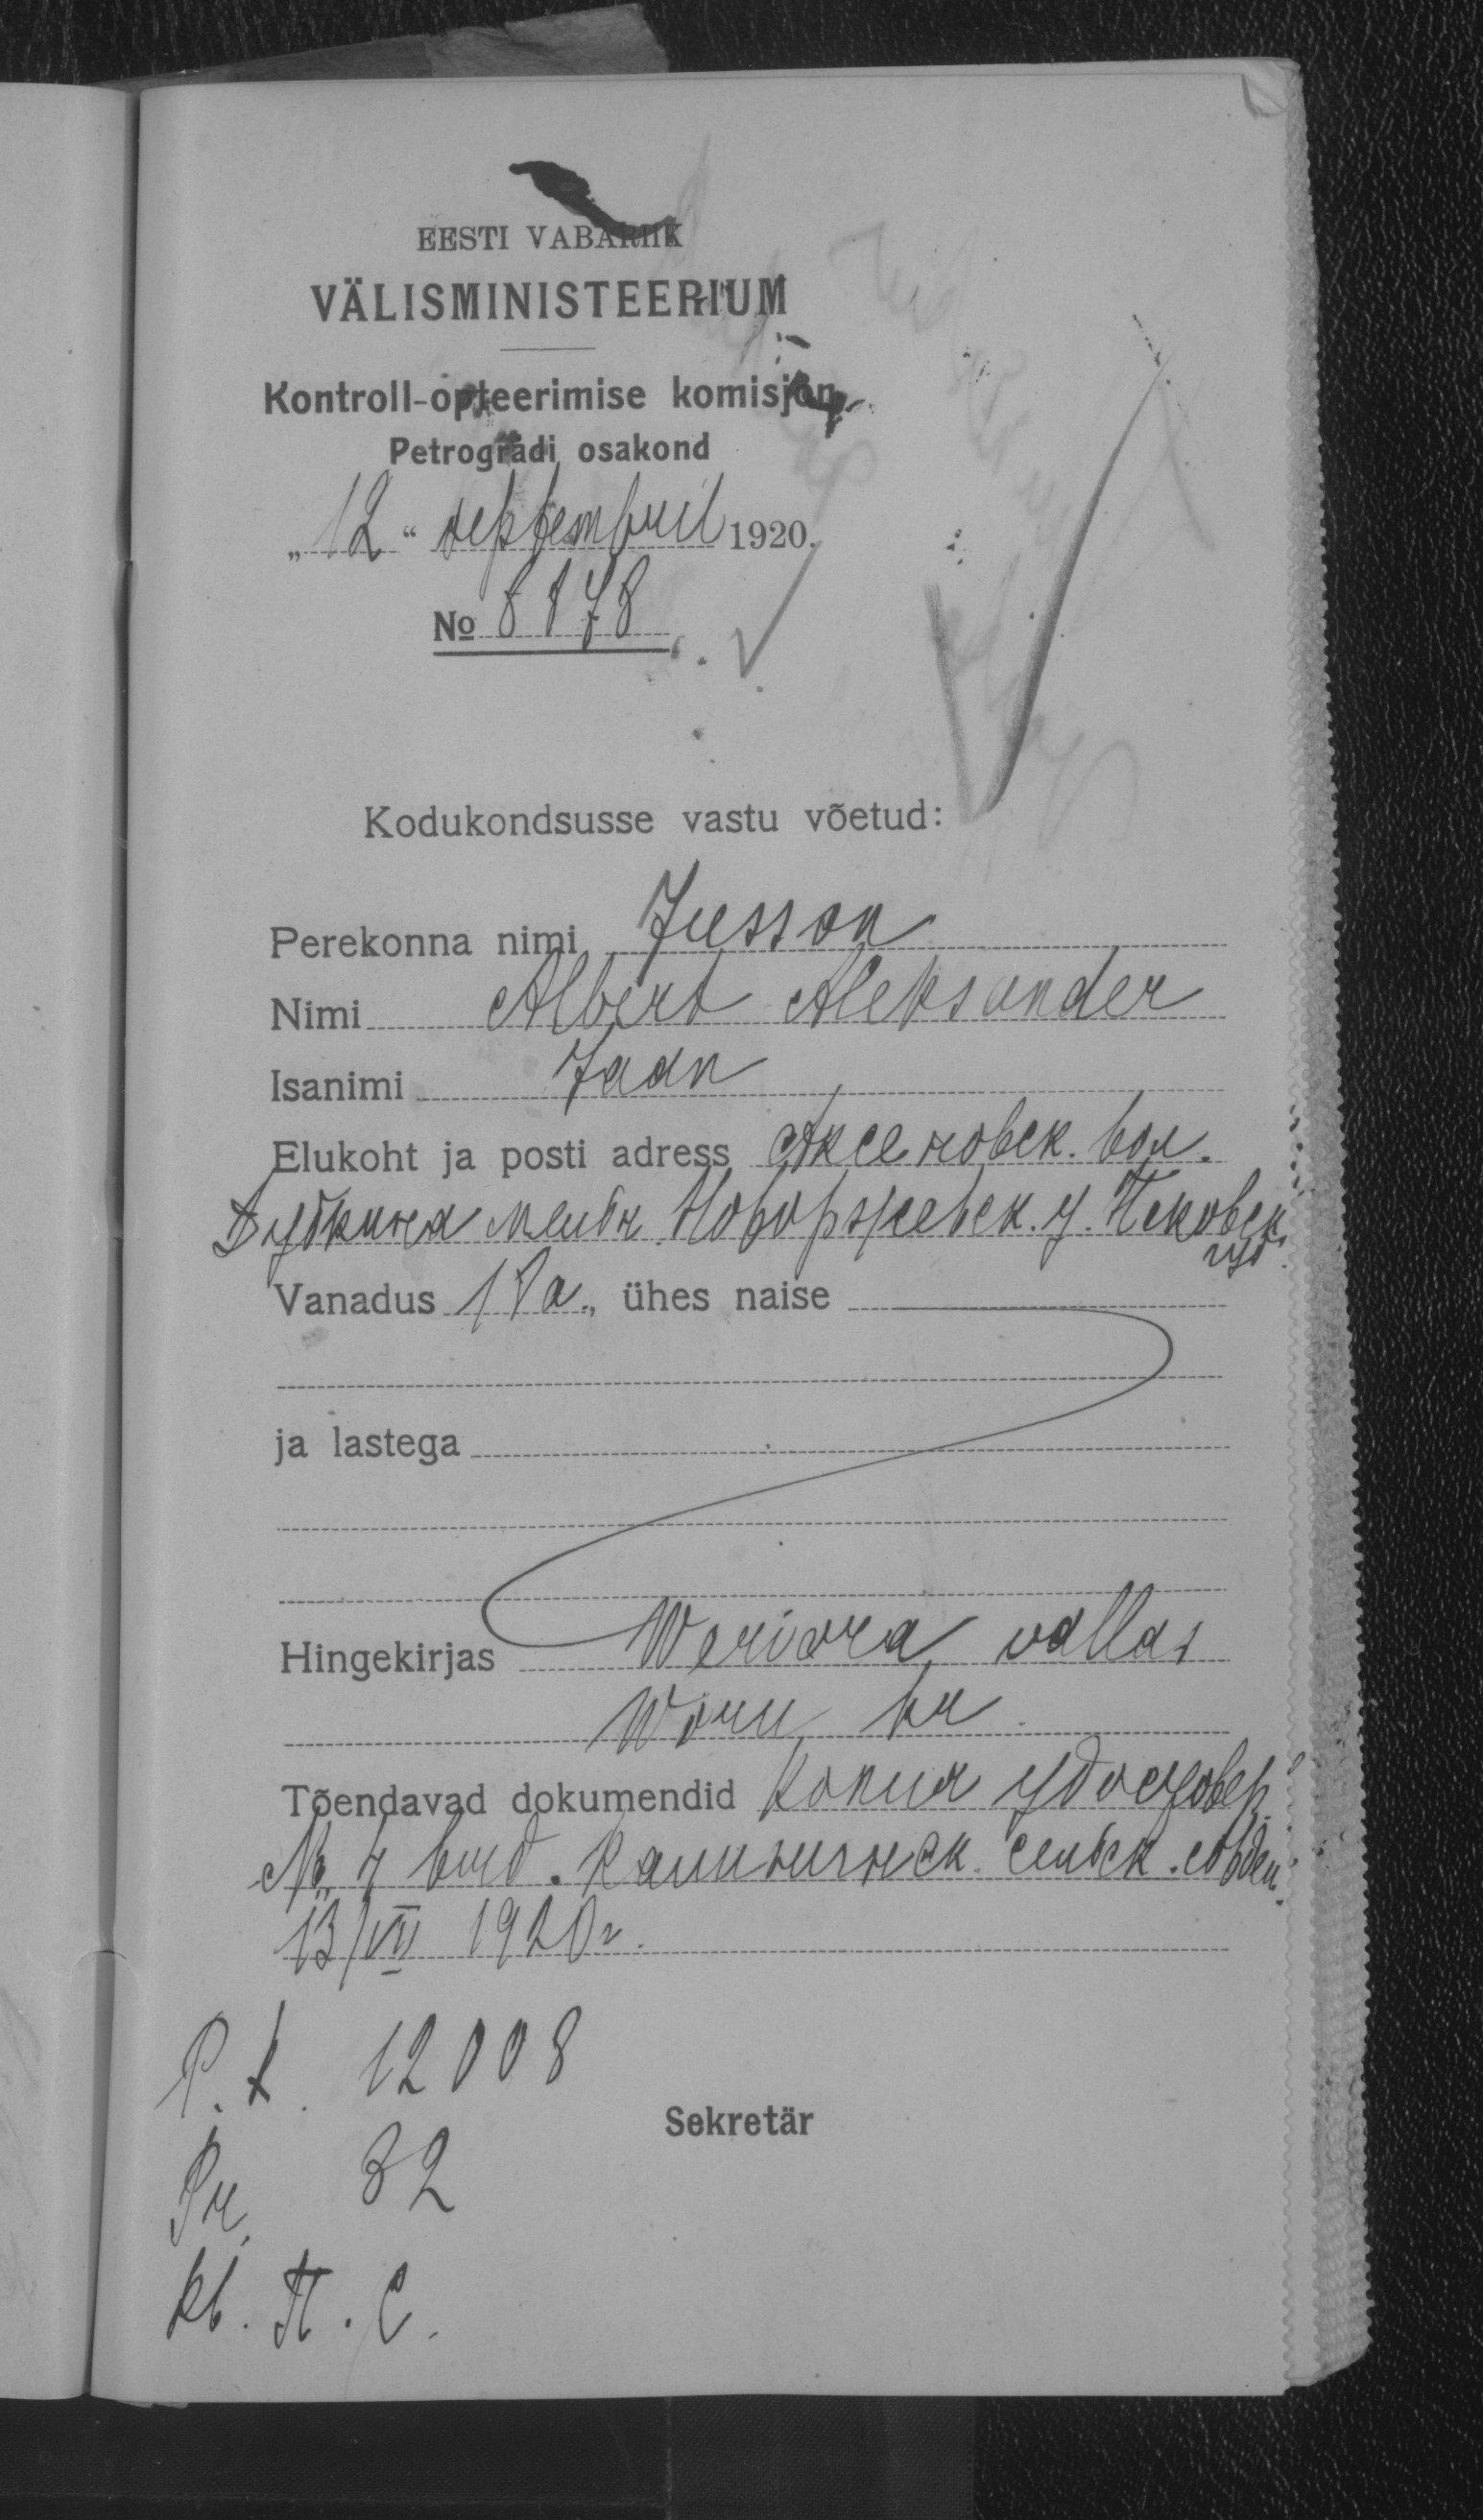 EESTI VABARIIK
VÄLISMINISTEERIUM
Kontroll-opteerimise komisjon
Petrogradi osakond
„12“ septembril 1920.
No 8878
Kodukondsusse vastu võetud:
Perekonna nimi Jusson
Nimi Albert Aleksander
Isanimi Jaan
Elukoht ja posti adress Аксеновск. вол.
Дубкина мельн. Новоржевск. у. Псковск.
губ.
Vanadus 18 a., ühes naise
ja lastega
Hingekirjas Weriora vallas
Woru kr
Tõendavad dokumendid Копия удостовер.
№ 4 выд. сельск.
13/VII 1920 г.
P. t. 12008
Sekretär
Pr. 32
kb. П. С.